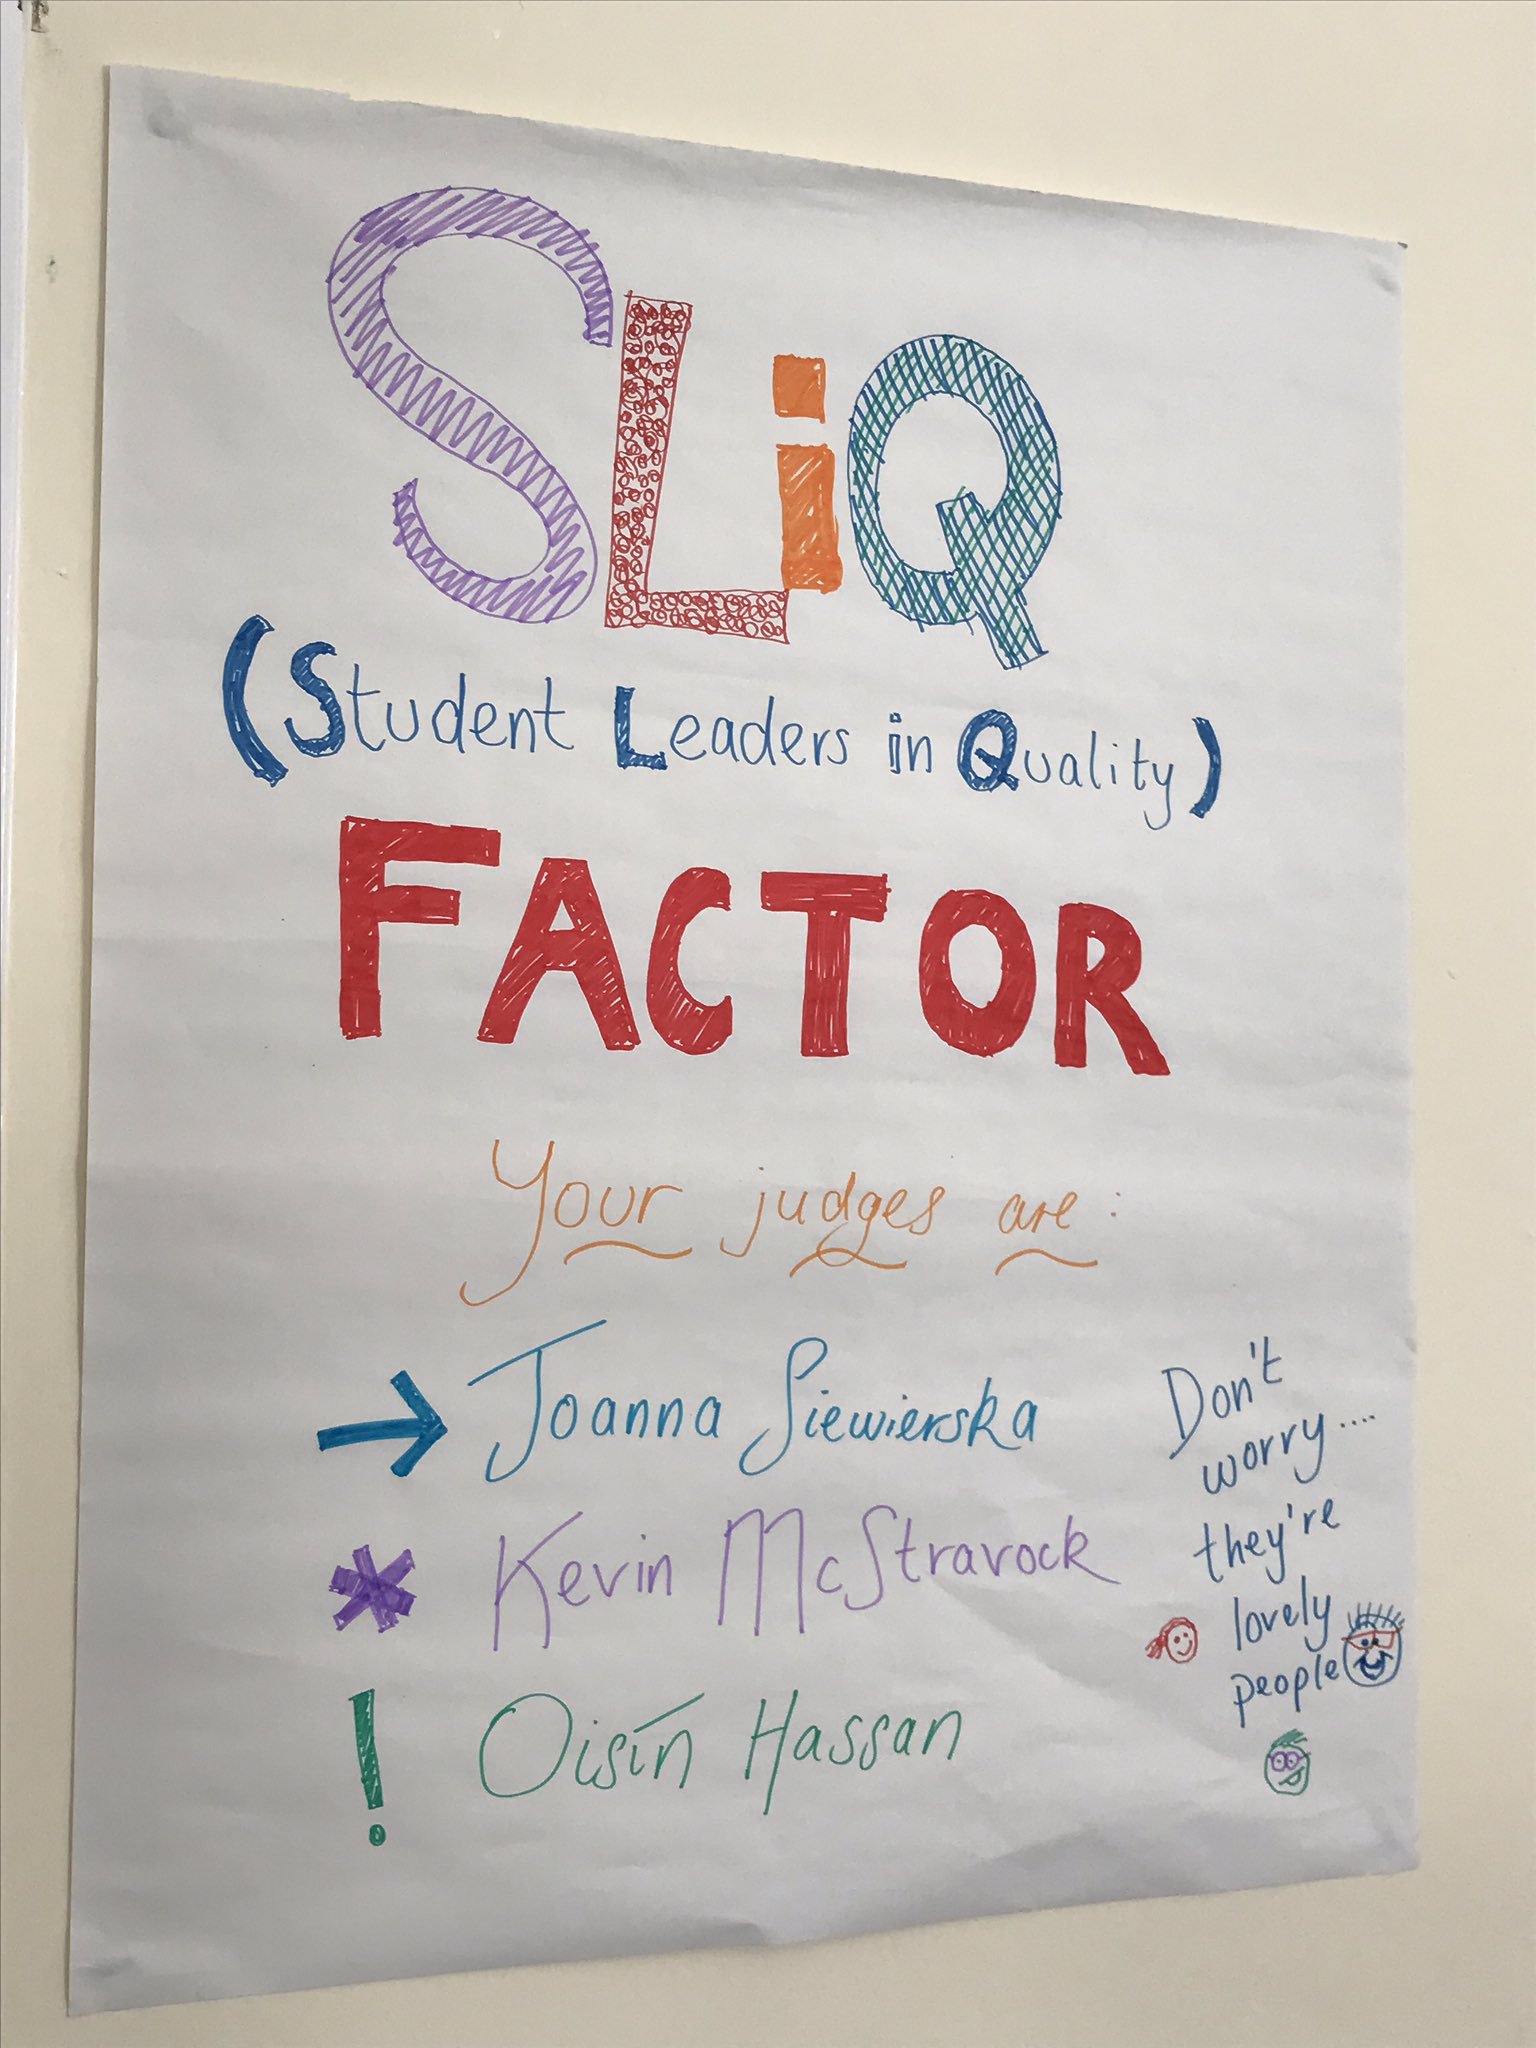 SLiQ
(Student Leaders in Quality)
FACTOR
Your judges are:
→ Joanna Siewierska
* Kevin McStravock
! Oisín Hassan
Don't
worry....
they're
lovely
people